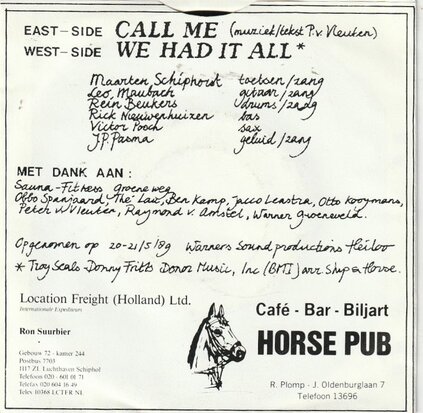 EAST-SIDE CALL ME (muziek/tekst P. v. Vleuten)
WEST-SIDE WE HAD IT ALL*
Maarten Schiphorst toetsen/zang
Leo Maubach gitaar/zang
Rein Beukers drums/zang
Rick Nieuwenhuizen bas
Victor Pooch sax
J.P. Pasma geluid/zang
MET DANK AAN:
Sauna-Fitness Groeneweg
Obbo Spanjaard, "The Lau", Ben Kamp, Jacco Leenstra, Otto Kooymans,
Peter v. Vleuten, Raymond v. Amstel, Warner Groeneveld.
Opgenomen op 20-21/5/89 Warners Sound productions Heiloo
* Troy Seals - Donny Fritts Donor Music, Inc (BMI) arr Ship of Horse.
Location Freight (Holland) Ltd.
Internationale Expediteurs
Ron Suurbier
Gebouw 72 - kamer 244
Postbus 7703
1117 ZL Luchthaven Schiphol
Telefoon 020 - 601 01 71
Telefax 020 604 16 49
Telex 10368 LCTER NL
Café - Bar - Biljart
HORSE PUB
R. Plomp - J. Oldenburglaan 7
Telefoon 13696